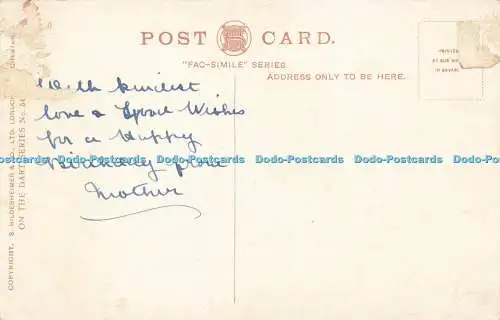 POST CARD.
"FAC-SIMILE" SERIES.
ADDRESS ONLY TO BE HERE.
With kindest
love & Good Wishes
for a Happy
Birthday from
Mother
Dodo-Postcards Dodo-Postcards Dodo-Postcards Dodo-Postcards Dodo-Postcards
COPYRIGHT, S. HILDESHEIMER & CO., LTD. LONDON
ON THE DART SERIES No. 54